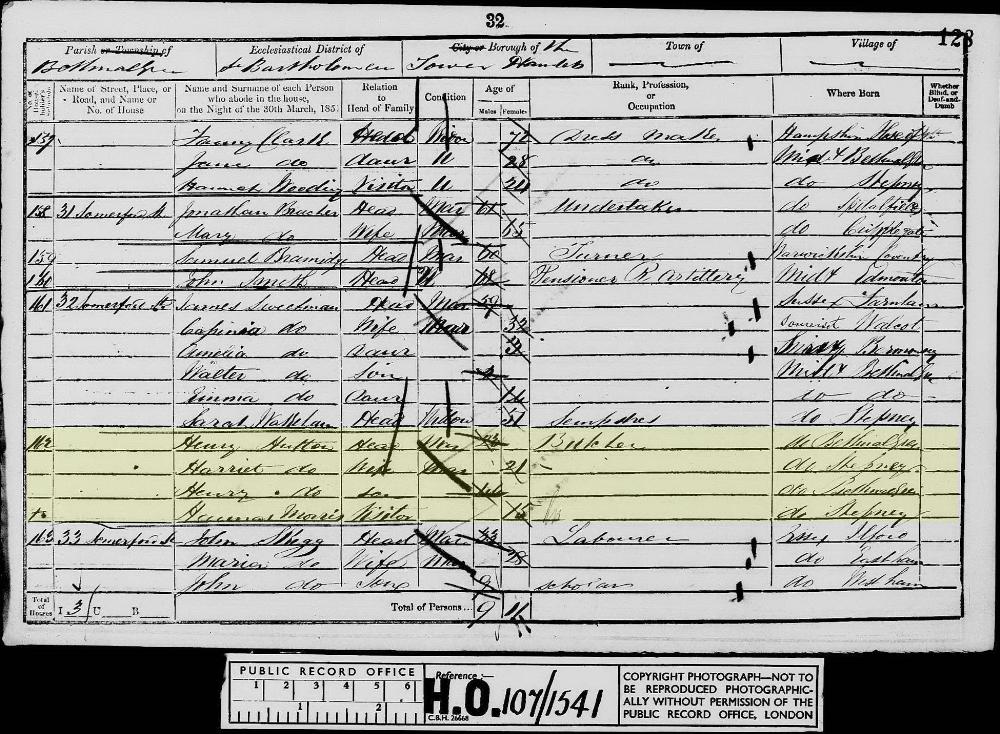 32
128
Parish or Township of
Ecclesiastical District of
City or Borough of the
Town of
Village of
St Bartholomew
Tower Hamlets
Name of Street, Place, or Road, and Name or No. of House
Name and Surname of each Person who abode in the house, on the Night of the 30th March, 185
Relation to Head of Family
Condition
Age of
Males
Females
Rank, Profession, or Occupation
Where Born
Whether Blind, or Deaf-and-Dumb
157 Fanny Clark Head Widow 72 Maker Hampshire
Jane do Daur U 28 do Midx Bethnal Green
Hannah Visitor U 21 do do Stepney
158 31 Somerford St Jonathan Head Mar Undertaker do Spitalfields
Mary do Wife Mar do Cripplegate
159 Samuel Head Mar 60 Turner Warwickshire Coventry
160 John Smith Head Pensioner R. Artillery Midx Edmonton
161 32 Somerford St James Sweetman Head Mar 59 Sussex
do Wife Mar 32 Somerset Walcot
Amelia do Daur Surrey Bermondsey
Walter do Son Midx Bethnal Gn
Emma do Daur do do
Sarah Head Widow 51 do Stepney
162 Henry Hutton Head Mar 23 Butcher do Bethnal Green
Harriet do Wife Mar 21 do Stepney
Henry do Son do Bethnal Green
Hannah Morris Visitor do Stepney
163 33 Somerford St John Head Mar Labourer Essex Ilford
Maria do Wife Mar 48 do East ham
John do Son 9 scholar do West ham
Total of Houses I 3 U B
Total of Persons... 9 11
PUBLIC RECORD OFFICE
1 2 3 4 5 6
1 2
Reference :-
H.O. 107/1541
C.B.H. 26668
COPYRIGHT PHOTOGRAPH—NOT TO
BE REPRODUCED PHOTOGRAPHIC-
ALLY WITHOUT PERMISSION OF THE
PUBLIC RECORD OFFICE, LONDON